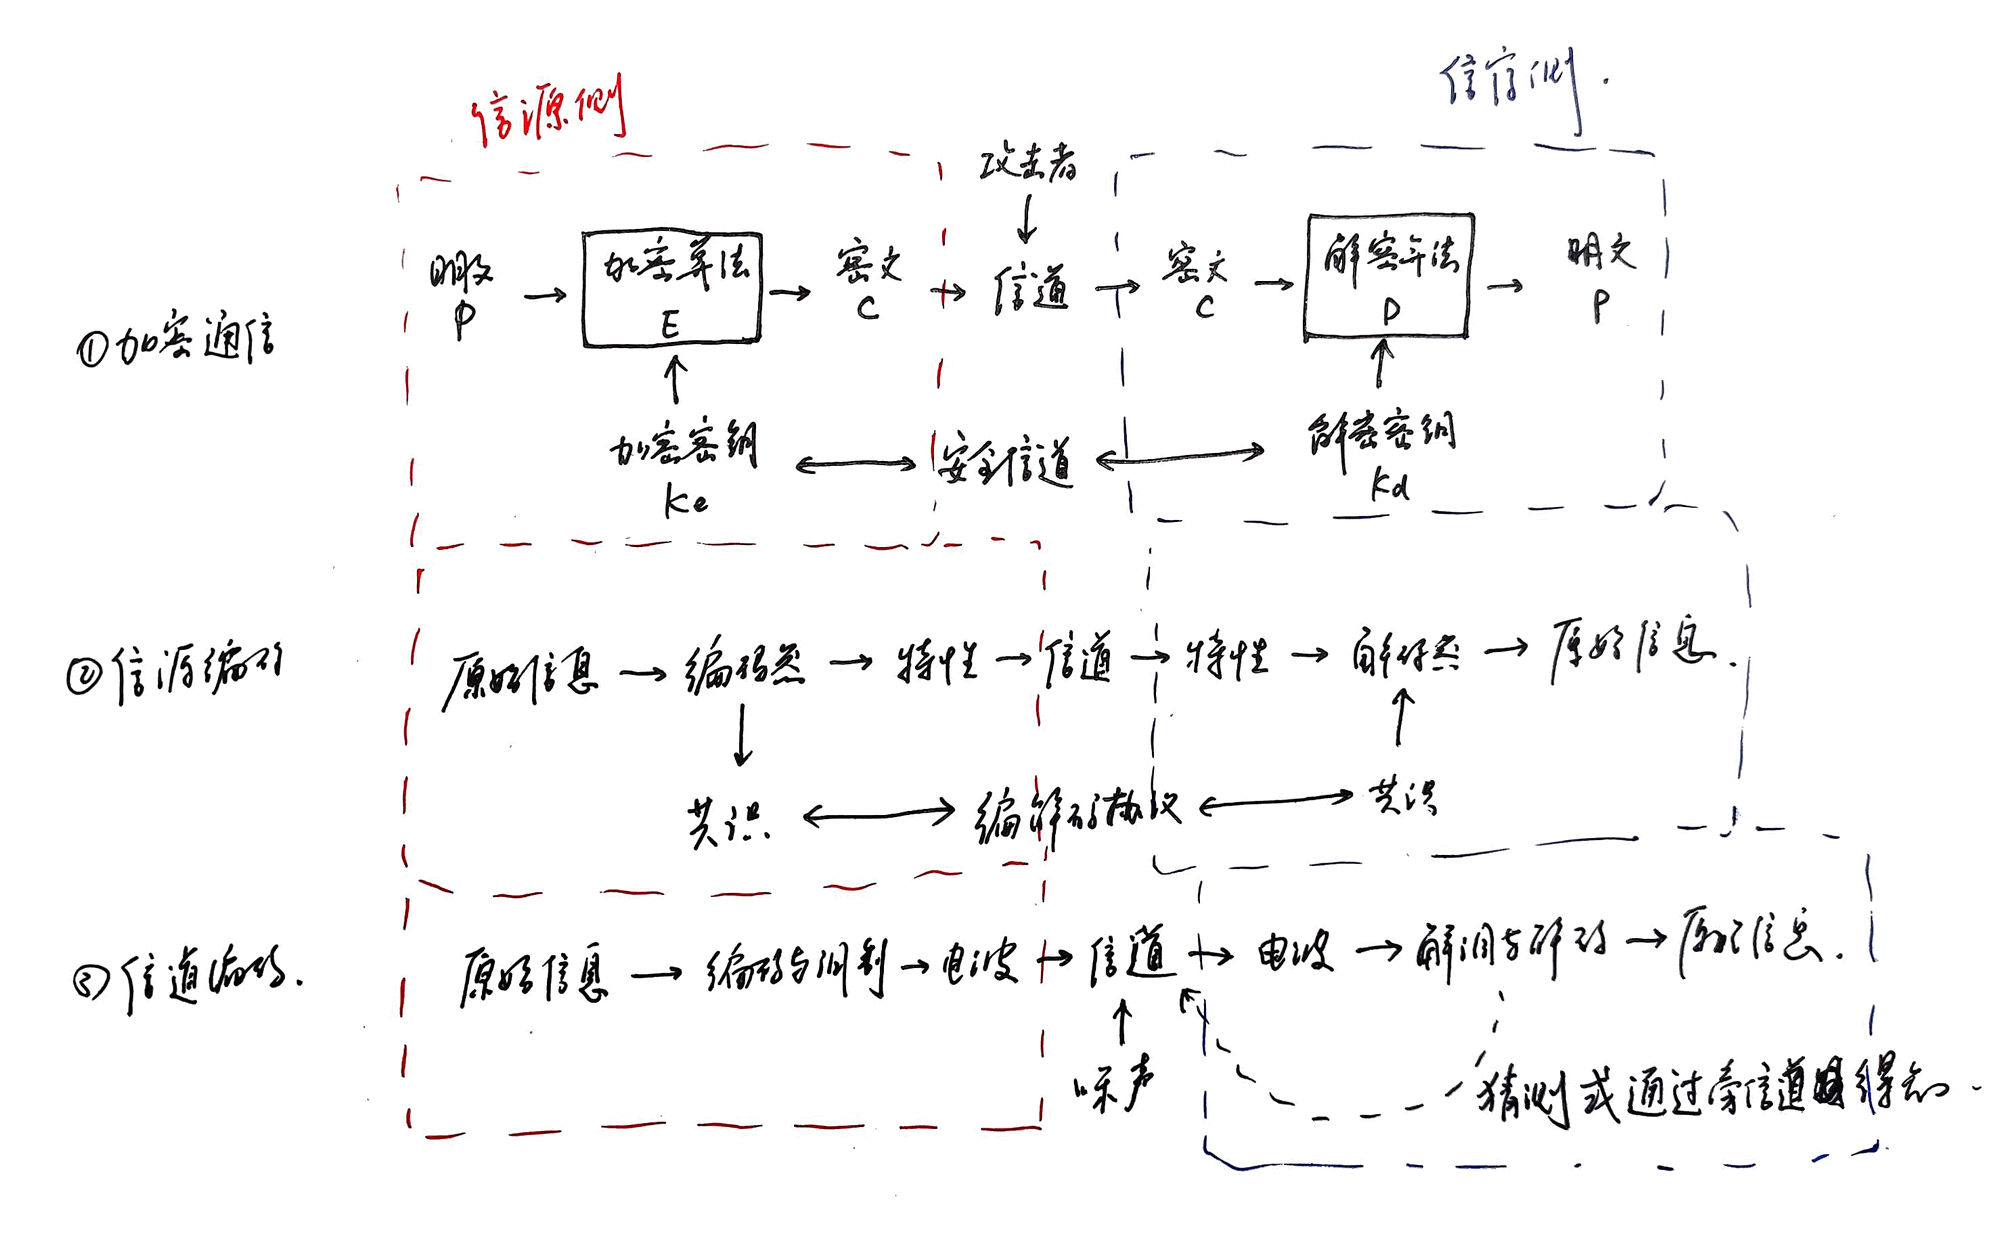 信源侧
信宿侧.
攻击者
①加密通信
明文
P
加密算法
E
密文
C
信道
密文
C
解密算法
D
明文
P
加密密钥
Ke
安全信道
解密密钥
Kd
②信源编码
原始信息
编码器
特性
信道
特性
解码器
原始信息.
共识
编解码协议
共识
③信道编码.
原始信息
编码与调制
电波
信道
电波
解调与解码
原始信息.
噪声
猜测或通过旁信道得知.